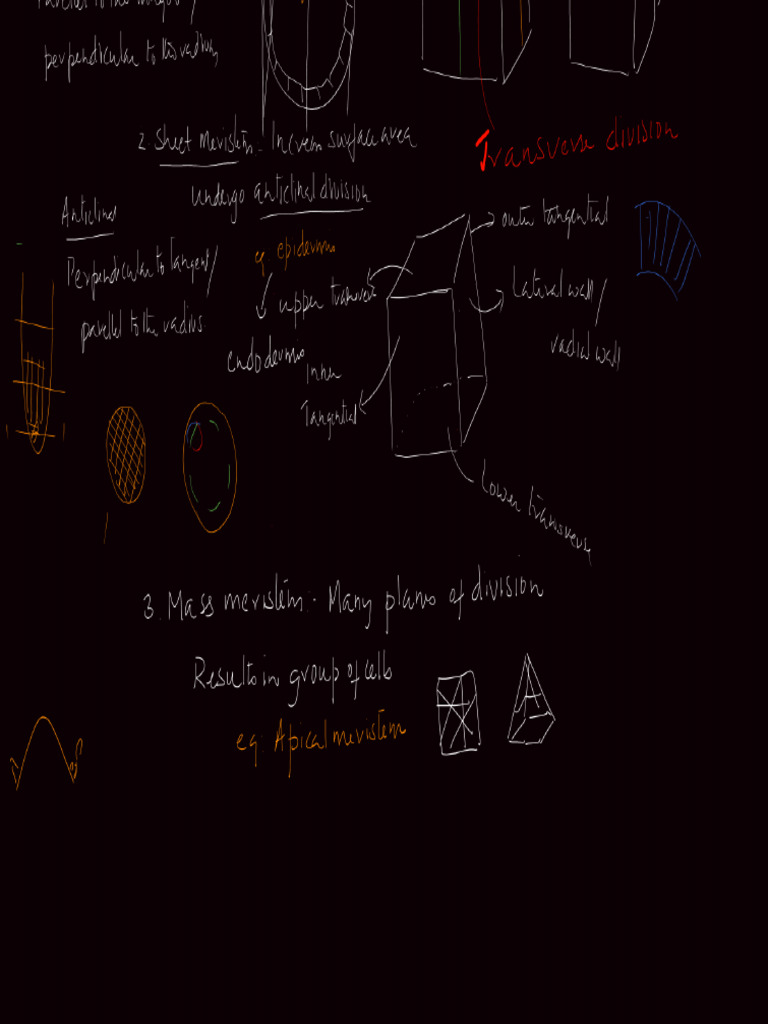 Parallel to the tangent /
perpendicular to the radius
Transverse division
2. Sheet Meristem - Increase surface area
undergo anticlinal division
Anticlinal
Perpendicular to Tangent /
parallel to the radius
eg: epidermis
endodermis
outer tangential
upper transverse
Lateral wall /
radial wall
Inner
Tangential
Lower transverse
3. Mass meristem:- Many planes of division
Results in group of cells
eg: Apical meristem